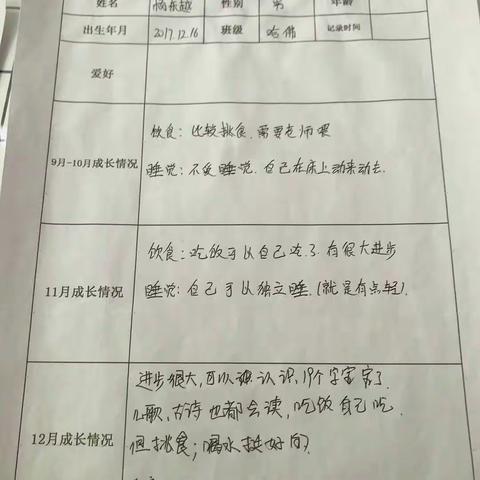 姓名 杨东越 性别 男 年龄
出生年月 2017.12.16 班级 哈佛 记录时间
爱好
9月-10月成长情况
饮食：比较挑食，需要老师喂
睡觉：不爱睡觉，自己在床上动来动去。
11月成长情况
饮食：吃饭可以自己吃了，有很大进步
睡觉：自己可以独立睡（就是有点轻）。
12月成长情况
进步很大，可以认识19个字宝宝了
儿歌、古诗也都会读，吃饭自己吃
但挑食；喝水挺好的